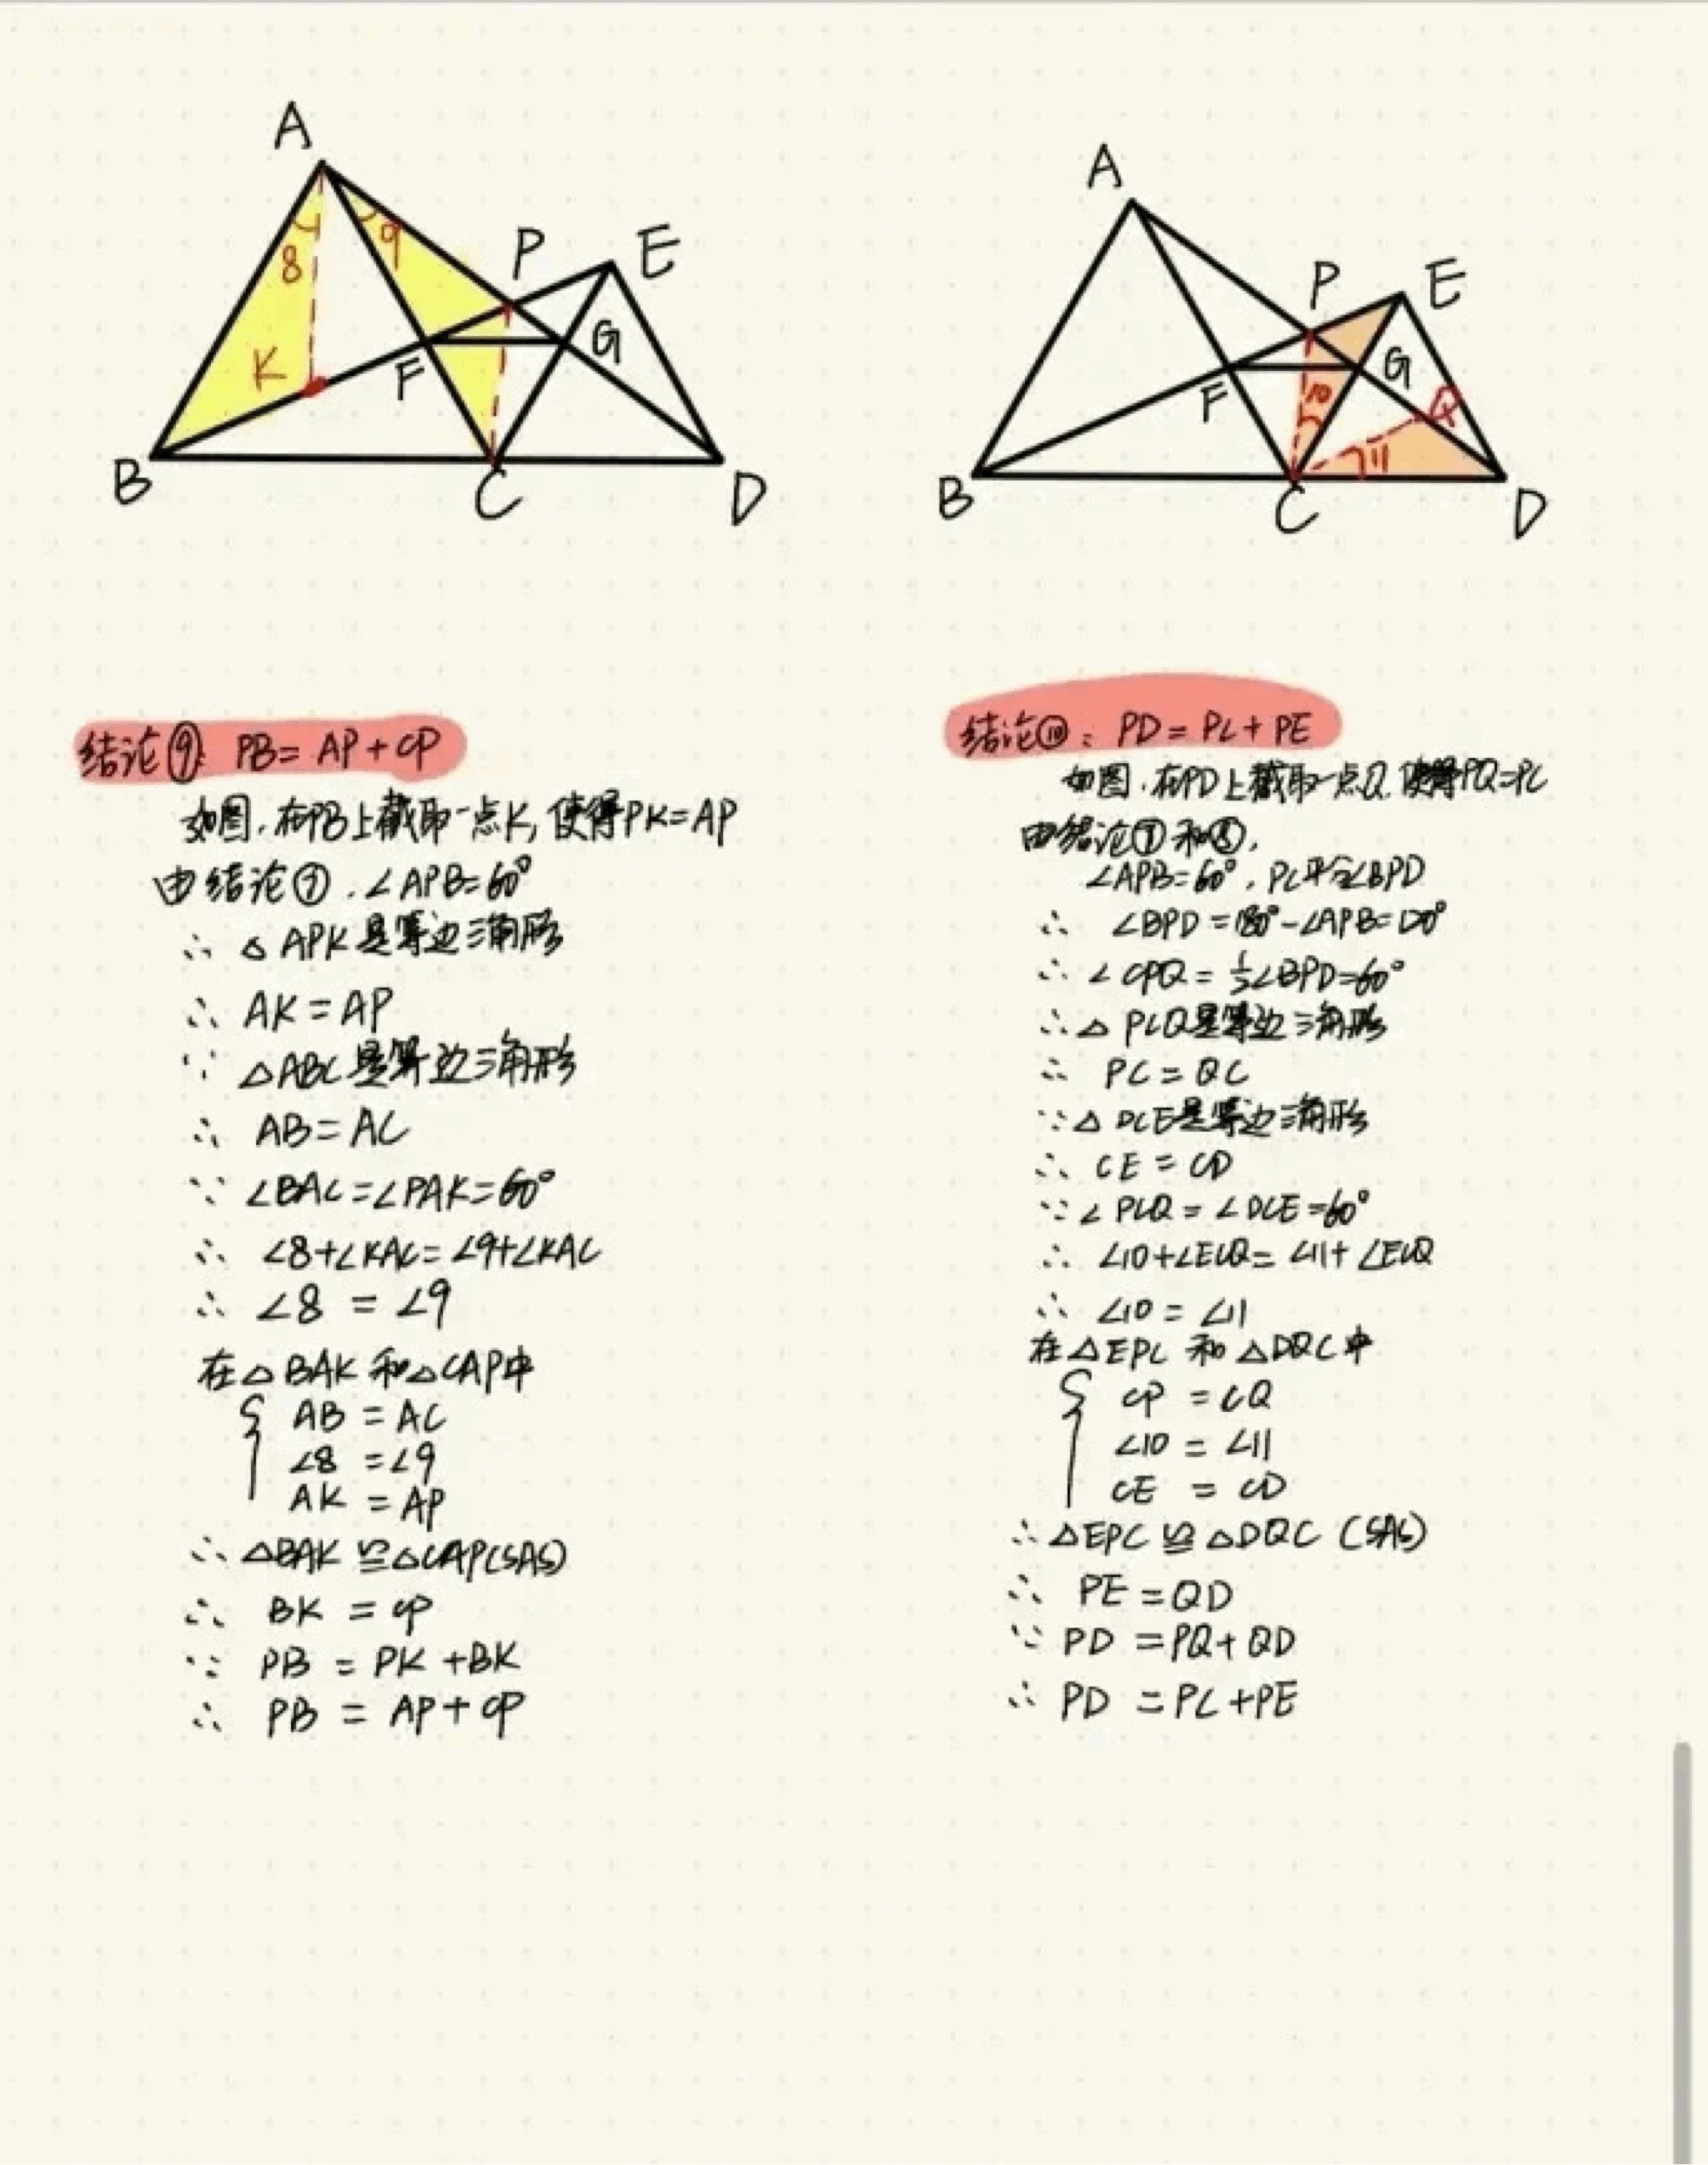 A
8
9
K
P
E
F
G
B
C
D
A
P
E
F
G
10
Q
11
B
C
D
结论⑨: PB=AP+CP
如图,在PB上截取一点K,使得PK=AP
由结论⑦,∠APB=60°
∴ △APK是等边三角形
∴ AK=AP
∵ △ABC是等边三角形
∴ AB=AC
∵ ∠BAC=∠PAK=60°
∴ ∠8+∠KAC=∠9+∠KAC
∴ ∠8 = ∠9
在△BAK和△CAP中
AB = AC
∠8 = ∠9
AK = AP
∴ △BAK≌△CAP(SAS)
∴ BK = CP
∵ PB = PK+BK
∴ PB = AP+CP
结论⑩: PD=PC+PE
如图,在PD上截取一点Q,使得PQ=PC
由结论⑦和⑧,
∠APB=60°,PC平分∠BPD
∴ ∠BPD=180°-∠APB=120°
∴ ∠CPQ=½∠BPD=60°
∴ △PCQ是等边三角形
∴ PC=QC
∵ △DCE是等边三角形
∴ CE=CD
∵ ∠PCQ=∠DCE=60°
∴ ∠10+∠ECQ=∠11+∠ECQ
∴ ∠10=∠11
在△EPC和△DQC中
CP = CQ
∠10 = ∠11
CE = CD
∴ △EPC≌△DQC (SAS)
∴ PE=QD
∵ PD=PQ+QD
∴ PD=PC+PE